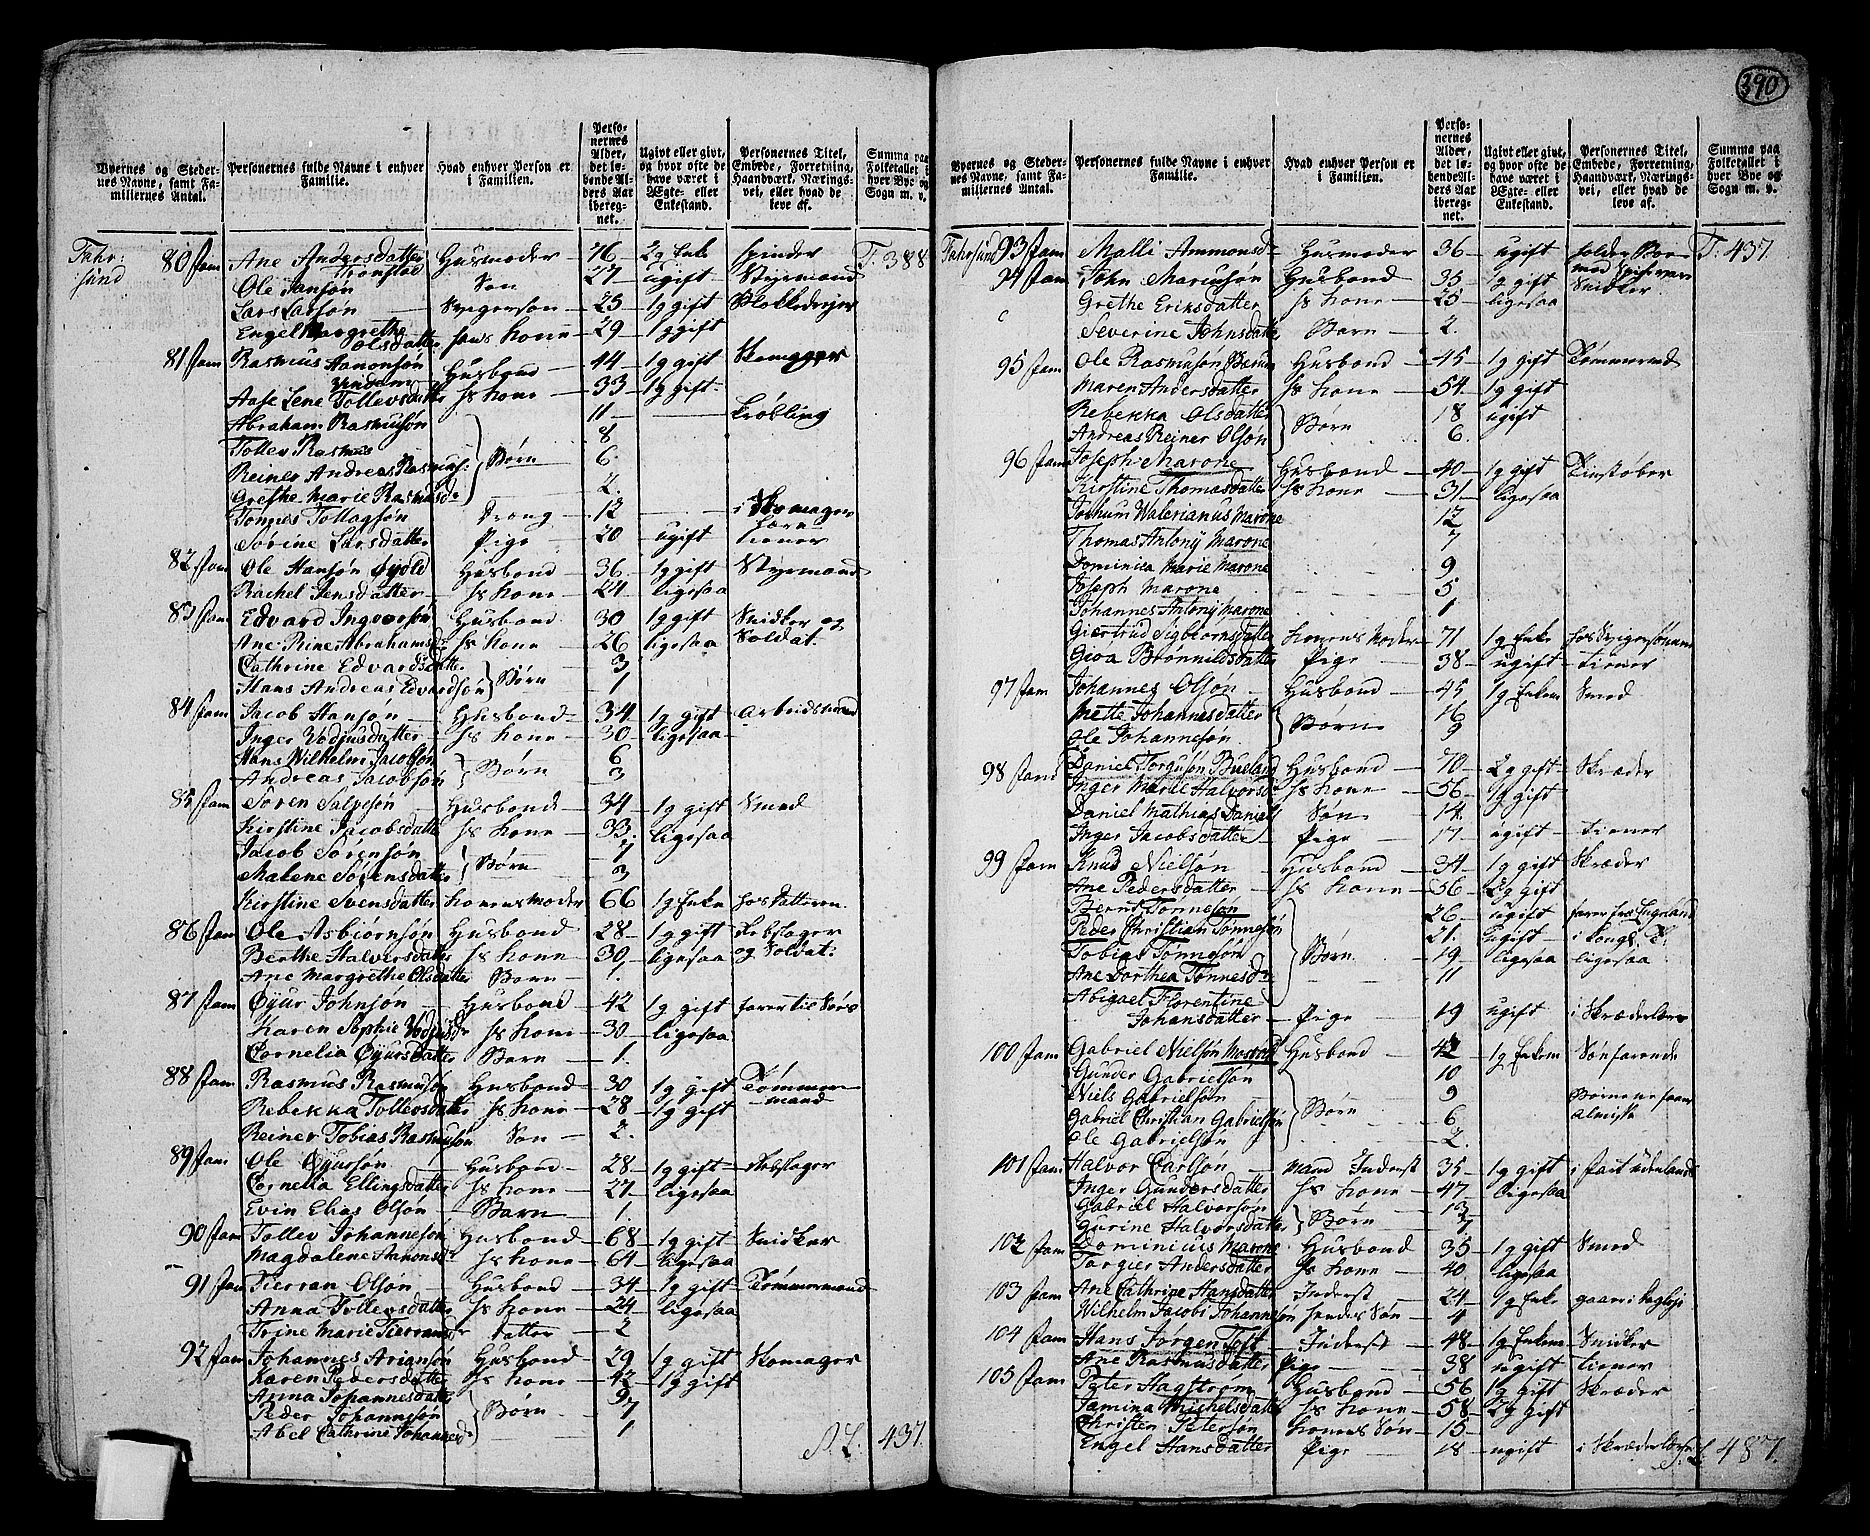 390
Byernes og Stedernes Navne, samt Familiernes Antal. | Personernes fulde Navne i enhver Familie. | Hvad enhver Person er i Familien. | Personernes Alder, det løbende Alders Aar iberegnet. | Ugivt eller givt, og hvor ofte de have været i Ægte- eller Enkestand. | Personernes Titel, Embede, Forretning, Haandværk, Næringsvei, eller hvad de leve af. | Summa paa Folketallet i hver Bye og Sogn m. v.
Fahrsund 80 fam Ane Andersdatter Tronstad Husmoder 76 2g Enke spinder T: 388
Ole Jansøn Søn 27 ugift Styrmand
Lars Larsøn Svigersøn 25 1g gift Blokkedreyer
Engel Margrethe Olsdatter hans Kone 29 1g gift
81 fam Rasmus Hanonsøn Husbond 44 1g gift Skomager
Aase Lene Tollevsdatter hs Kone 33 1g gift
Abraham Rasmusøn 11 Krøbling
Tollev Rasmus 8
Reiner Andreas Rasmus: Børn 6
Grethe Marie Rasmusd: 2
Tønnes Tollagsøn Dreng 12 i Skomager Lære
Sørine Larsdatter Pige 20 ugift tiener
82 fam Ole Hansøn Øyold Husbond 36 1g gift Styrmand
Rachel Jensdatter hs Kone 24 ligesaa
83 fam Edvard Ingversøn Husbond 30 1g gift Snidker og
Ane Rine Abrahamsd: hs Kone 26 ligesaa Soldat.
Cathrine Edvardsdatter Børn 3
Hans Andreas Edvardsøn 1
84 fam Jacob Hansøn Husbond 34 1g gift Arbeidsmand
Inger Vodjusdatter hs Kone 30 ligesaa
Hans Wilhelm Jacobsøn Børn 6
Andreas Jacobsøn 3
85 fam Søren Salvesøn Husbond 34 1g gift Smed
Kirstine Jacobsdatter hs Kone 33 ligesaa
Jacob Sørensøn Børn 7
Malene Sørensdatter 3
Kirstine Svensdatter Konens Moder 66 1g Enke hos datteren
86 fam Ole Asbiørnsøn Husbond 28 1g gift Rebslager
Berthe Halversdatter hs Kone 30 ligesaa og Soldat:
Ane Margrethe Olsdatter Barn 1
87 fam Øyur Johnsøn Husbond 42 1g gift farer til Søes
Karen Sophie Vodjusd: hs Kone 30 ligesaa
Cornelia Øyursdatter Barn 1
88 fam Rasmus Rasmusøn Husbond 30 1g gift Tømmermand
Rebekka Tollevsdatter hs Kone 28 1g gift
Reiner Tobias Rasmusøn Søn 2
89 fam Ole Øyursøn Husbond 28 1g gift Rebslager
Cornelia Ellingsdatter hs Kone 27 ligesaa
Evin Elias Olsøn Barn 1
90 fam Tollev Johannesøn Husbond 68 1g gift Snidker
Magdalene Hanonsd: hs Kone 64 ligesaa
91 fam Tierran Olsøn Husbond 34 1g gift Tømmermand
Anna Tollevsdatter hs Kone 24 ligesaa
Trine Marie Tierransd: datter 2
92 fam Johannes Ariansøn Husbond 29 1g gift Skomager
Karen Pedersdatter hs Kone 42 1g gift
Anna Johannesdatter 9
Peder Johannesøn Børn 7
Abel Cathrine Johannesd: 1
437
Byernes og Stedernes Navne, samt Familiernes Antal. | Personernes fulde Navne i enhver Familie. | Hvad enhver Person er i Familien. | Personernes Alder, det løbende Alders Aar iberegnet. | Ugivt eller givt, og hvor ofte de have været i Ægte- eller Enkestand. | Personernes Titel, Embede, Forretning, Haandværk, Næringsvei, eller hvad de leve af. | Summa paa Folketallet i hver Bye og Sogn m. v.
Fahrsund 93 fam Malli Ammonsd: Husmoder 36 ugift T: 437
94 fam John Marcusøn Husbond 35 1g gift Snidker
Grethe Eriksdatter hs Kone 25 ligesaa
Severine Johnsdatter Barn 2
95 fam Ole Rasmusøn Husbond 45 1g gift Tømmermd
Maren Andersdatter hs Kone 54 1g gift
Rebekka Olsdatter Børn 18 ugift
Andreas Reiner Olsøn 6
96 fam Joseph Marone Husbond 40 1g gift Tinstøber
Kirstine Thomasdatter hs Kone 31 ligesaa
Jochum Walerianus Marone 12
Thomas Antonij Marone 7
Dominica Marie Marone 9
Joseph Marone 5
Johannes Antonij Marone 1
Giertrud Sigbiørnsdatter Konens Moder 71 1g Enke hos Svigersønnen
Gioa Brønnildsdatter Pige 38 ugift tiener
97 fam Johannes Olsøn Husbond 45 1g Enkem Smed
Mette Johannesdatter Børn 16
Ole Johannesøn 9
98 fam Daniel Torgusøn Busland Husbond 70 2g gift Skræder
Inger Marie Halvorsd: hs Kone 56 1g gift
Daniel Mathias Daniels Søn 14
Inger Jacobsdatter Pige 17 ugift tiener
99 fam Knud Nielsøn Husbond 34 1g gift Skræder
Ane Pedersdatter hs Kone 56 2g gift
Bernt Tønnesøn 26 ugift farer fra Engeland
Peder Christian Tønnesøn 21 ugift i Kongl. T.
Tobias Tønnesøn Børn 19 ligesaa ligesaa
Ane Dorthea Tønnesd: 11
Abigael Florentine Johansdatter Pige 19 ugift i Skræderlære
100 fam Gabriel Nielsøn Husbond 42 1g Enkem Søefarende
Gunder Gabrielsøn 10
Niels Gabrielsøn Børn 9 Børnene faaer
Gabriel Christian Gabrielsøn 6 almisse
Ole Gabrielsøn 2
101 fam Halvor Carlsøn Mand Inderst 35 1g gift i fart udenlands
Inger Gundersdatter hs Kone 47 ligesaa
Gabriel Halvorsøn Børn 13
Gurine Halvorsdatter 7
102 fam Dominicus Marone Husbond 35 1g gift Smed
Torgier Andersdatter hs Kone 40 ligesaa
103 fam Ane Cathrine Hansdatter Inderst 24 1g Enke gaaer i Dagleje
Wilhelm Jacobi Johannesøn hendes Søn 4
104 fam Hans Jørgen Toft Inderst 48 1g Enkem Snidker
Ane Rasmusdatter Pige 38 ugift tiener
105 fam Peter Hagstrøm Husbond 56 1g gift Skræder
Jamina Michelsdatter hs Kone 58 2g gift
Christen Petersøn Konens Søn 15
Engel Hansdatter Pige 18 ugift i Skræderlære 487.